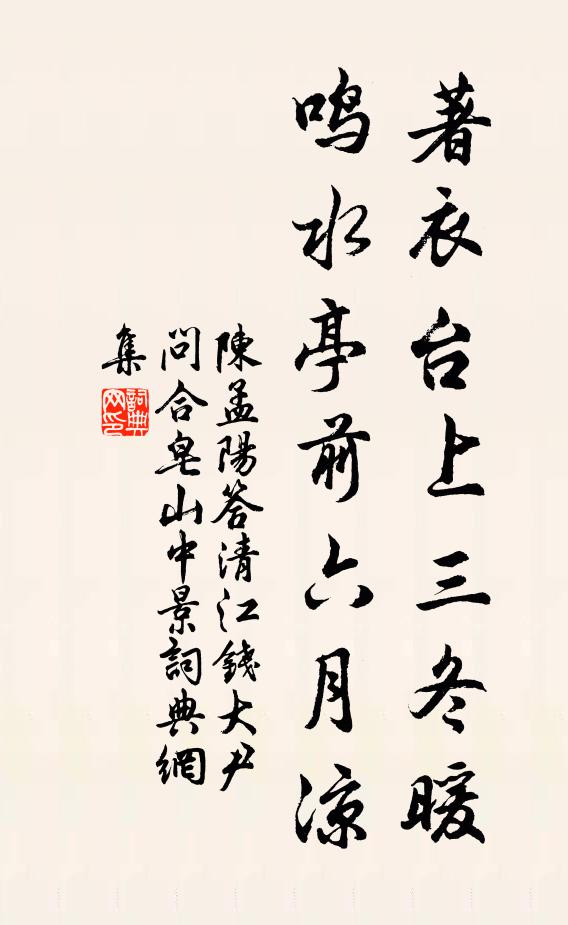 著衣台上三冬暖
鸣水亭前六月凉
陳孟陽答清江錢大尹
問合皂山中景詞典網
集
詞典
网印